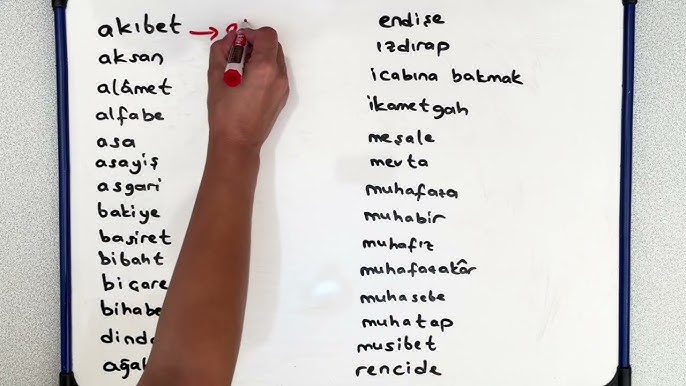 akıbet →
aksan
alâmet
alfabe
asa
asayiş
asgari
bakiye
basiret
bibaht
biçare
bihabe
endişe
ızdırap
icabına bakmak
ikametgah
meşale
mevta
muhafaza
muhabir
muhafız
muhafazakâr
muhasebe
muhatap
musibet
rencide